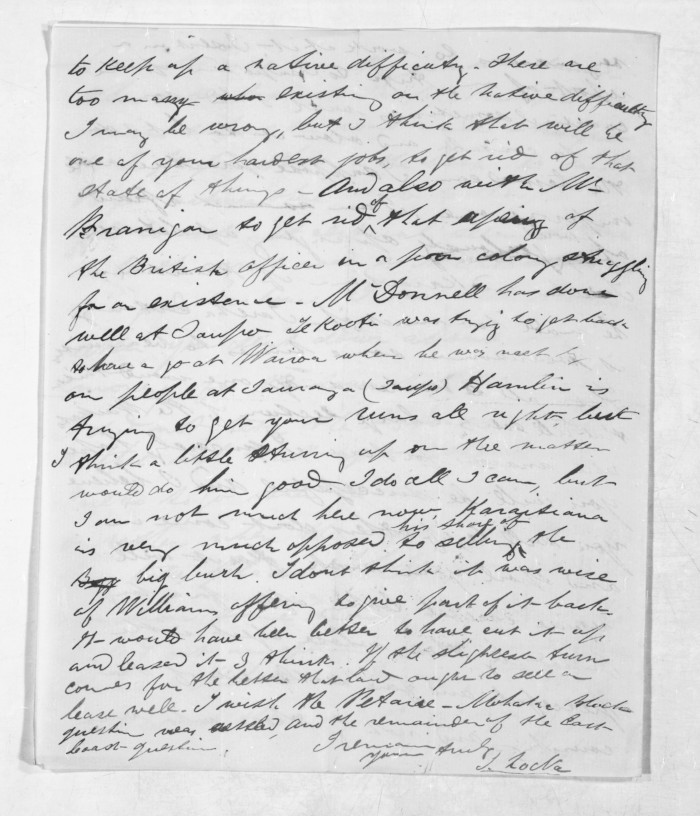 to keep up a native difficulty. There are
too many existing on the native difficulty
I may be wrong, but I think that will be
one of your hardest jobs, to get rid of that
state of things - And also with Mr
Branigan to get rid of that apeing of
the British Officer in a poor colony struggling
for an existence - McDonnell has done
well at Taupo Te Kooti was trying to get back
to have a go at Wairoa when he was met by
our people at Tauranga (Taupo) Hamlin is
trying to get your runs all right, but
I think a little stirring up on the matter
would do him good. I do all I can, but
I am not much here now. Karaitiana
is very much opposed to selling his share of the
big bush. I dont think it was wise
of Williams offering to give part of it back.
It would have been better to have cut it up
and leased it I think. If the slightest turn
comes for the better that land ought to sell or
lease well - I wish the Mohaka block
question was settled, and the remainder of the East
Coast question.
I remain
Yours truly
S. Locke